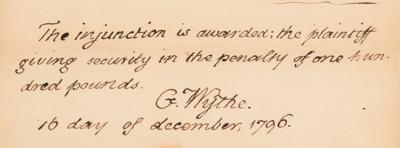 The injunction is awarded; the plaintiff
giving security in the penalty of one hun-
dred pounds.
G. Wythe.
16 day of december, 1796.